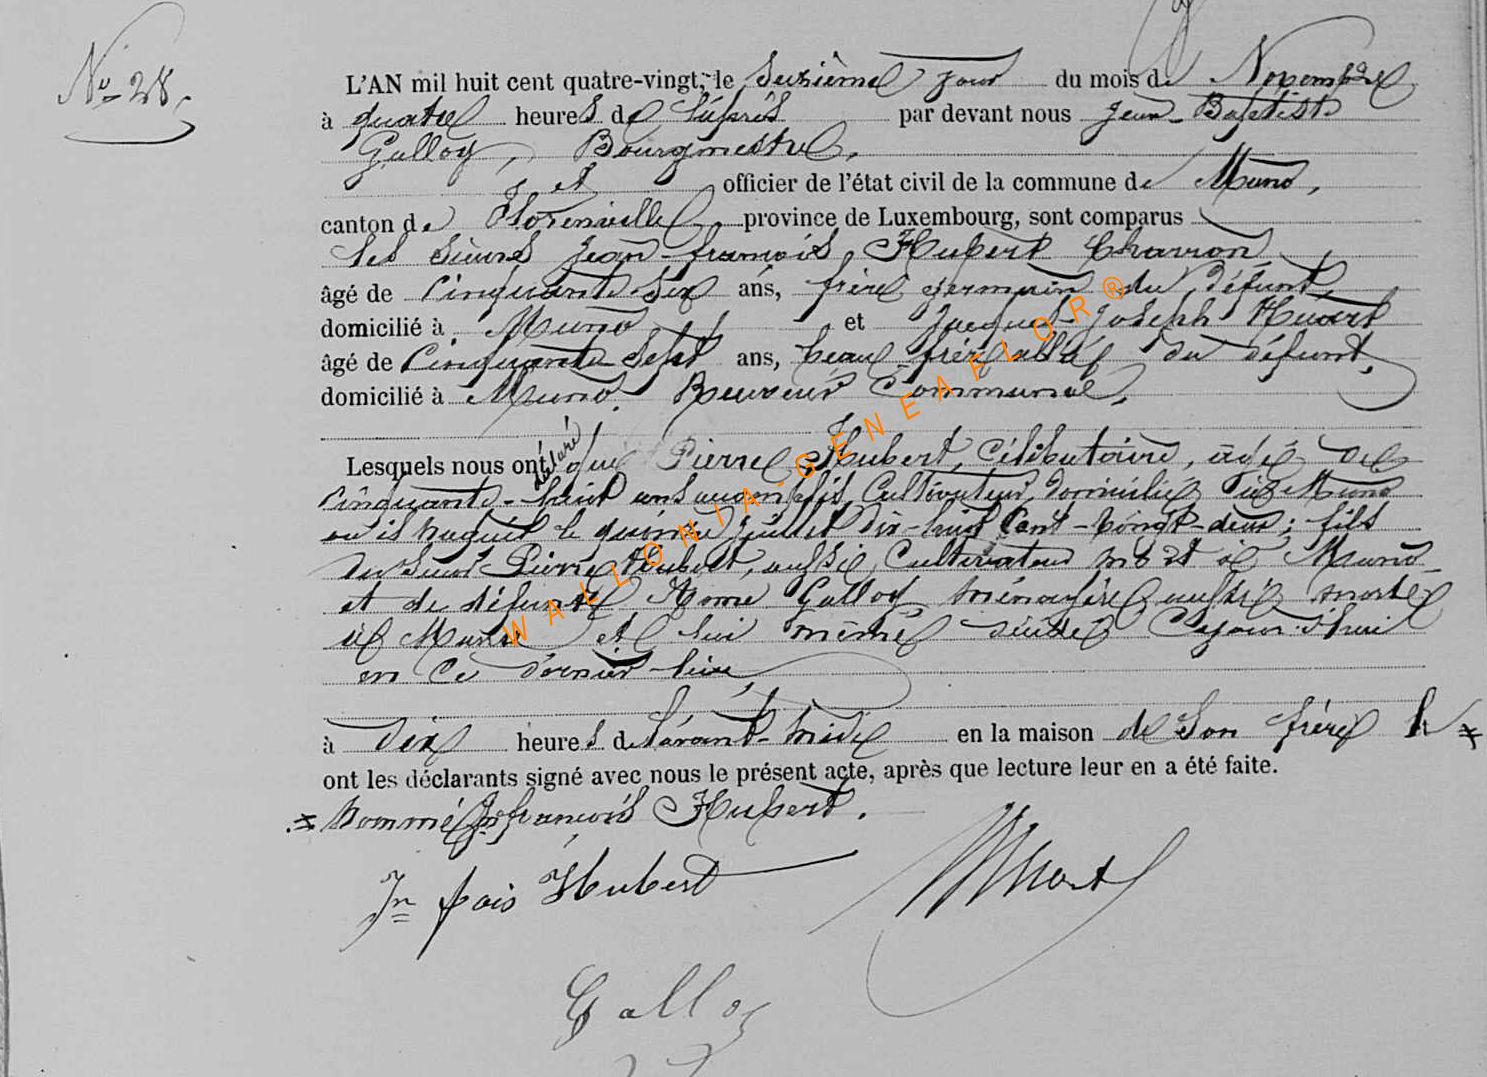 No 28.
L'AN mil huit cent quatre-vingt, le Seizième jour du mois de Novembre
à quatre heures de l'après par devant nous Jean-Baptiste
Galloy, Bourgmestre,
et officier de l'état civil de la commune de Muno,
canton de Florenville province de Luxembourg, sont comparus
les sieurs Jean-françois Hubert Charron,
âgé de Cinquante-six ans, frère germain du défunt,
domicilié à Muno et Jacques-Joseph Huart
âgé de Cinquante-Sept ans, beau-frère allié du défunt,
domicilié à Muno. Receveur Communal,
Lesquels nous ont déclaré que Pierre Hubert, Célibataire, âgé de
Cinquante-huit ans accomplis, Cultivateur, domicilié à Muno
où il naquit le quinze juillet dix-huit Cent-vingt-deux; fils
du Pierre Hubert, aussi Cultivateur mort à Muno
et de défunte Anne Galloy ménagère aussi morte
à Muno et lui même décédé Cejourd'hui
en Ce dernier lieu,
à Dix heures de l'avant-midi en la maison de Son frère *
ont les déclarants signé avec nous le présent acte, après que lecture leur en a été faite.
* Nommé Jn françois Hubert.
Jn fçois Hubert Huart
Galloy
WALLONIA-GENEAFLOR®